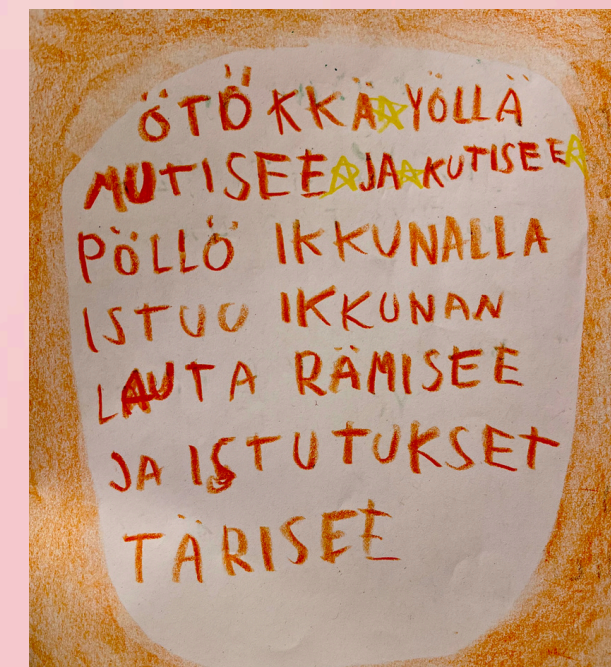 ÖTÖKKÄ YÖLLÄ
MUTISEE JA KUTISEE
PÖLLÖ IKKUNALLA
ISTUU IKKUNAN
LAUTA RÄMISEE
JA ISTUTUKSET
TÄRISEE